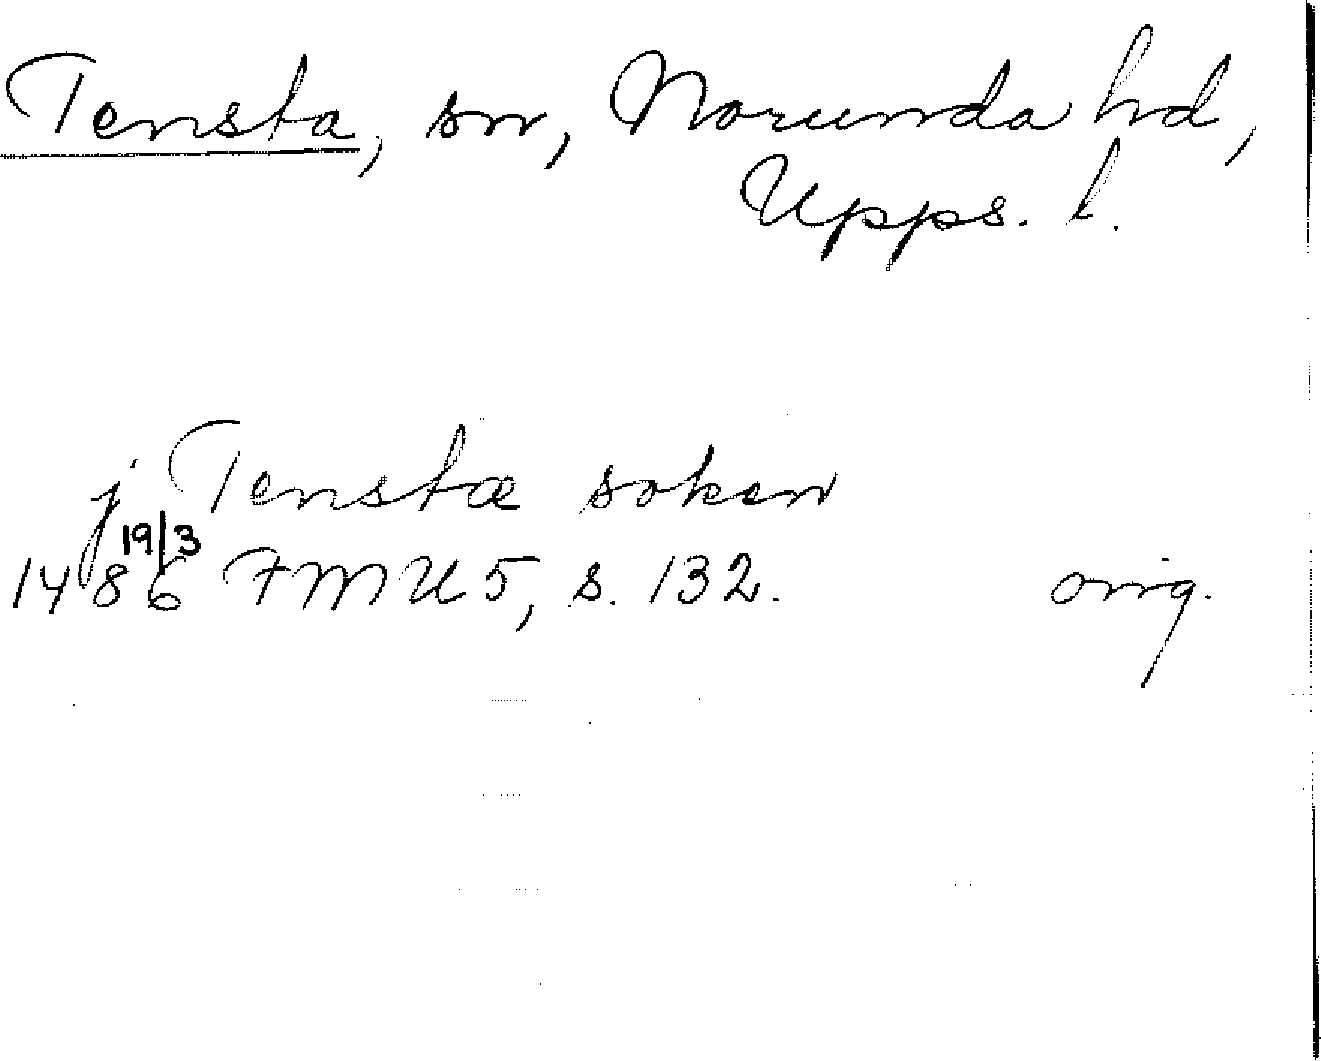 Tensta, sn, Norunda hd,
Upps. l.
j Tenstæ soken
19/3
1486 FMU 5, s. 132. orig.